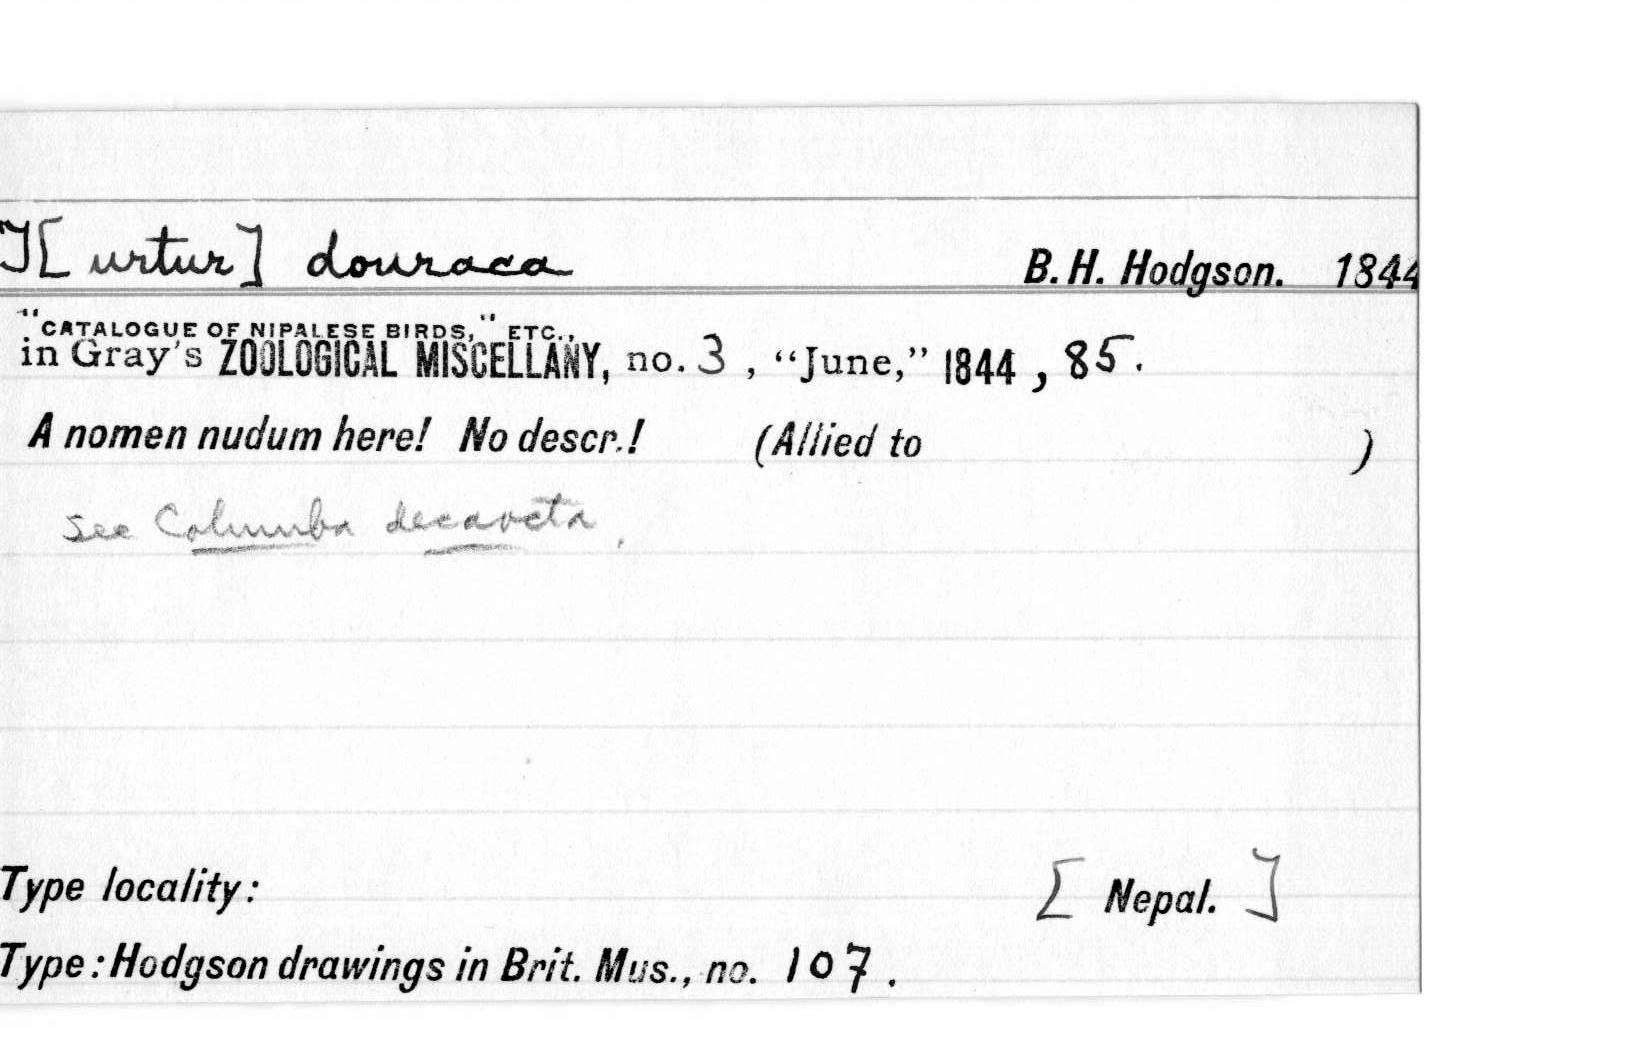 T[urtur] douraca B. H. Hodgson. 1844
"CATALOGUE OF NIPALESE BIRDS," ETC.,
in Gray's ZOOLOGICAL MISCELLANY, no. 3, "June," 1844, 85.
A nomen nudum here! No descr.! (Allied to )
see Columba decaocta,
Type locality: [Nepal.]
Type: Hodgson drawings in Brit. Mus., no. 107.